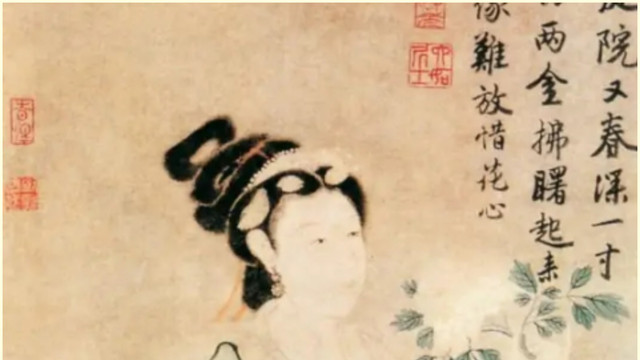 庭院又春深一寸
两金拂曙起来
緣難放惜花心
六如居士